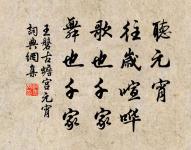 聽元宵
往歲喧嘩
歌也千家
舞也千家
王磐古蟾宮元宵
詞典網集